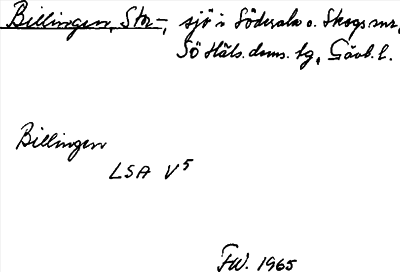 Billingen, Stor-, sjö i Söderala o. Skogs snr,
SÖ Häls. doms. tg, Gävl. l.
Billingen
LSA V5
FW. 1965